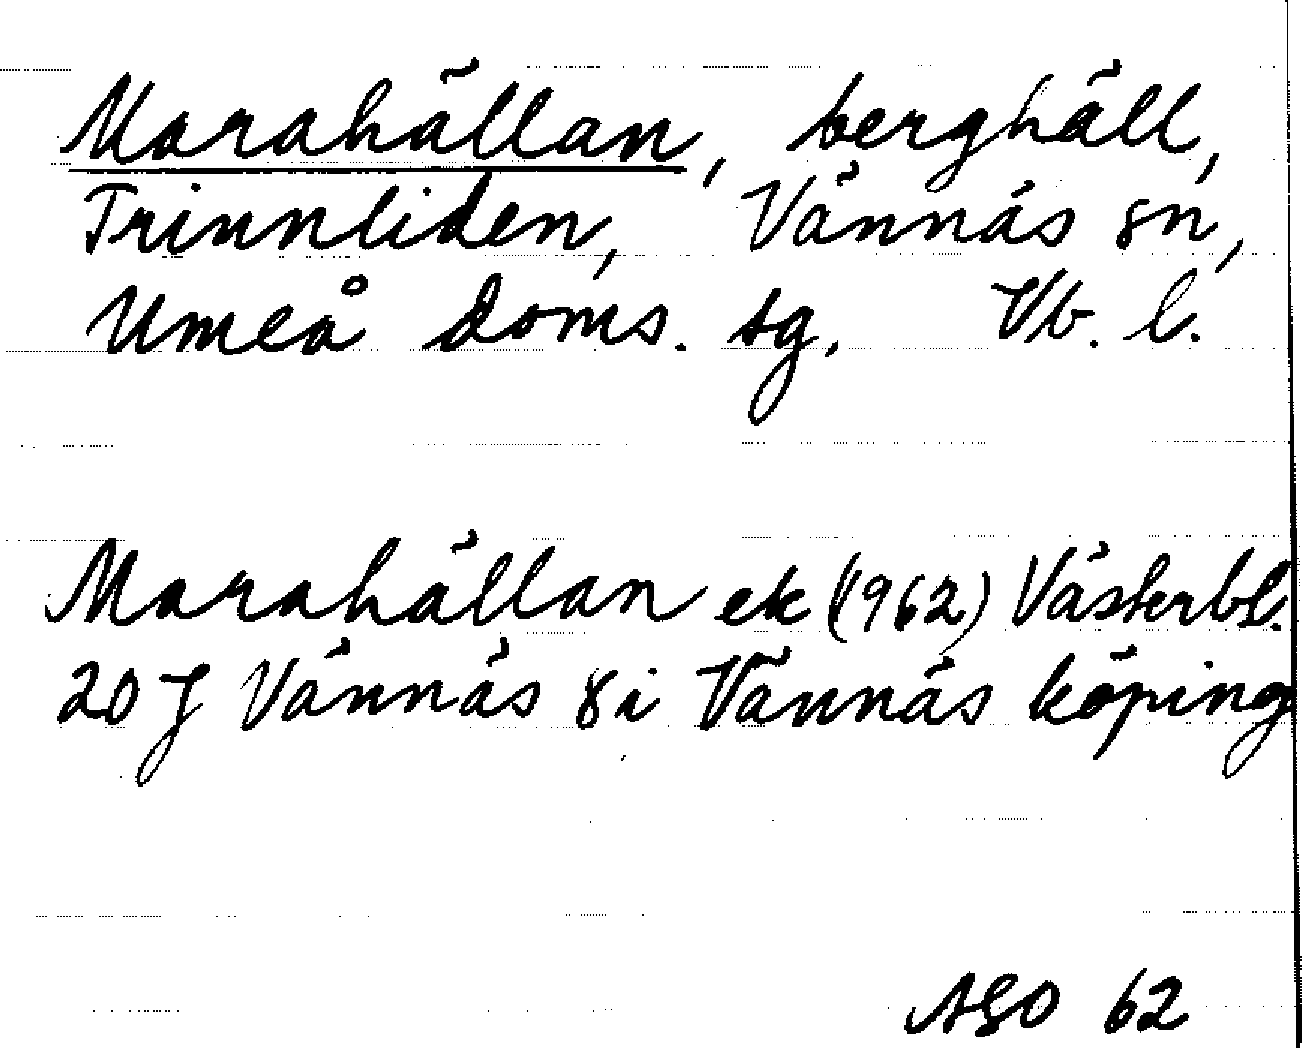 Marahällan, berghäll,
Trinnliden, Vännäs sn,
Umeå doms. sg. Vb. l.
Marahällan ek (1962) Västerbl.
20 J Vännäs 8i Vännäs köping
ASO 62